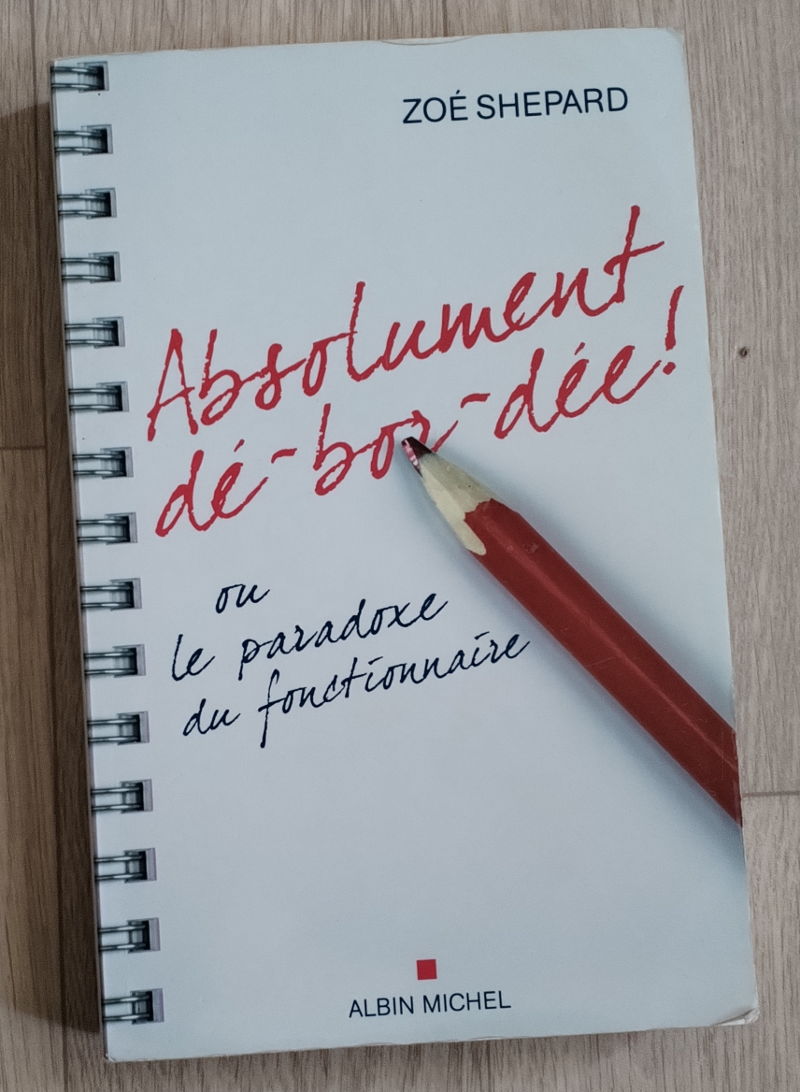 ZOÉ SHEPARD
Absolument
dé-bor-dée!
ou
le paradoxe
du fonctionnaire
ALBIN MICHEL